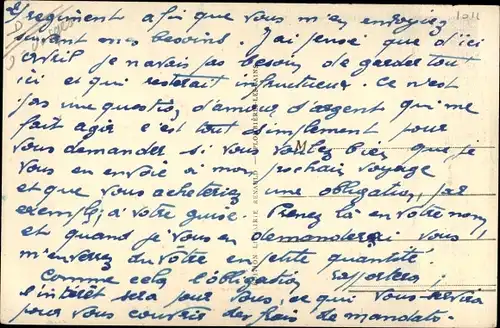 2) régiment afin que vous m'en envoyiez
suivant mes besoins. J'ai pensé que d'ici
avril je n'avais pas besoin de garder tout
ici et qui resterait infructueux. Ce n'est
pas une question d'amour d'argent qui me
fait agir c'est tout simplement pour
vous demander si vous voulez bien que je
vous en envoie à mon prochain voyage
et que vous achèteriez une obligation, par
exemple, à votre guise. Prenez là en votre nom,
et quand je vous en demanderai vous
m'enverrez du votre en petite quantité.
Comme cela l'obligation rapportera ;
l'intérêt sera pour vous, ce qui vous servira
pour vous couvrir des frais de mandats.
LIBRAIRIE RENAULD
M